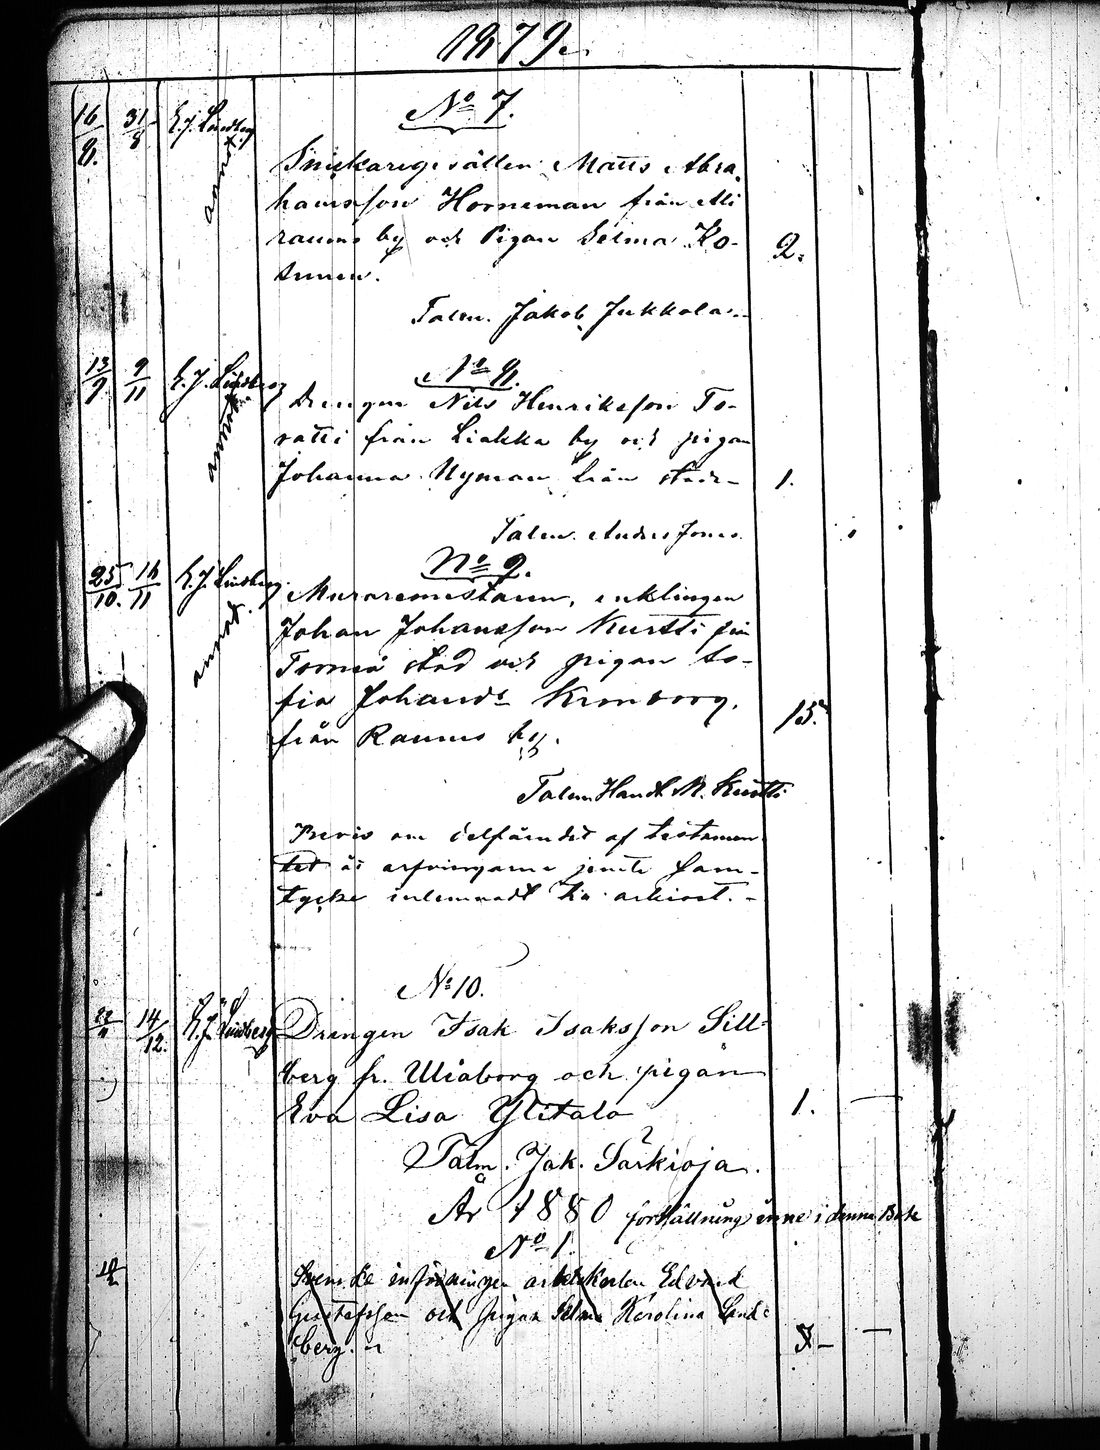 1879.
No 7.
16/8. 31/8 E. J. Lindberg
Snickaregesällen Matts Abra-
hamsson Horneman från
raums by och Pigan Selma Ko-
2.
Talm. Jakob Jukkola.
No 8.
13/9 9/11 E. J. Lindberg
Drengen Nils Henriksson To-
ratti från Liakka by och pigan
Johanna Nyman från staden
1.
Talm. Anders Jones
No 9.
25/10. 16/11 E. J. Lindberg.
Muraremästaren, enklingen
Johan Johansson Kurtti från
Torneå stad och pigan So-
fia Johansdr Kronborg,
från Raumo by.
15.
Talm Handl. M. Kurtti
Bevis om delfåendet af testamen
tet åt arfvingarne jemte sam-
tycke inlemnadt till arkivet.
No 10.
14/12. E. J. Lindberg
Drängen Isak Isaksson Sill-
berg fr. Uleåborg och pigan
Eva Lisa Ylitalo
1. —
Talm. Jak. Särkioja.
År 1880 fortsättning inne i denna Bok
No 1.
Svenske infödningen arbetskarlen Edvard
Gustafsson och pigan Selma Karolina Lind-
berg.